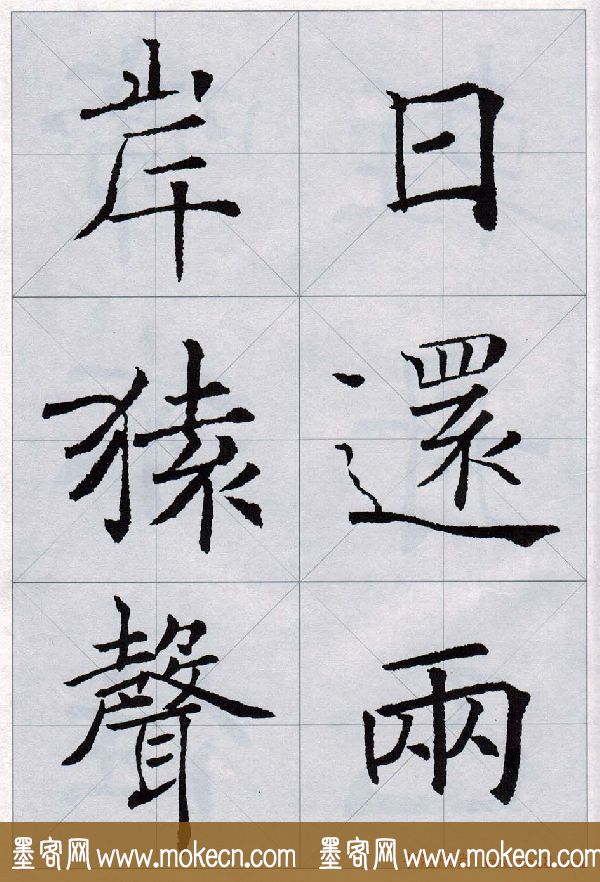 日還兩
岸猿聲
墨客网 www.mokecn.com 墨客网 www.mokecn.com